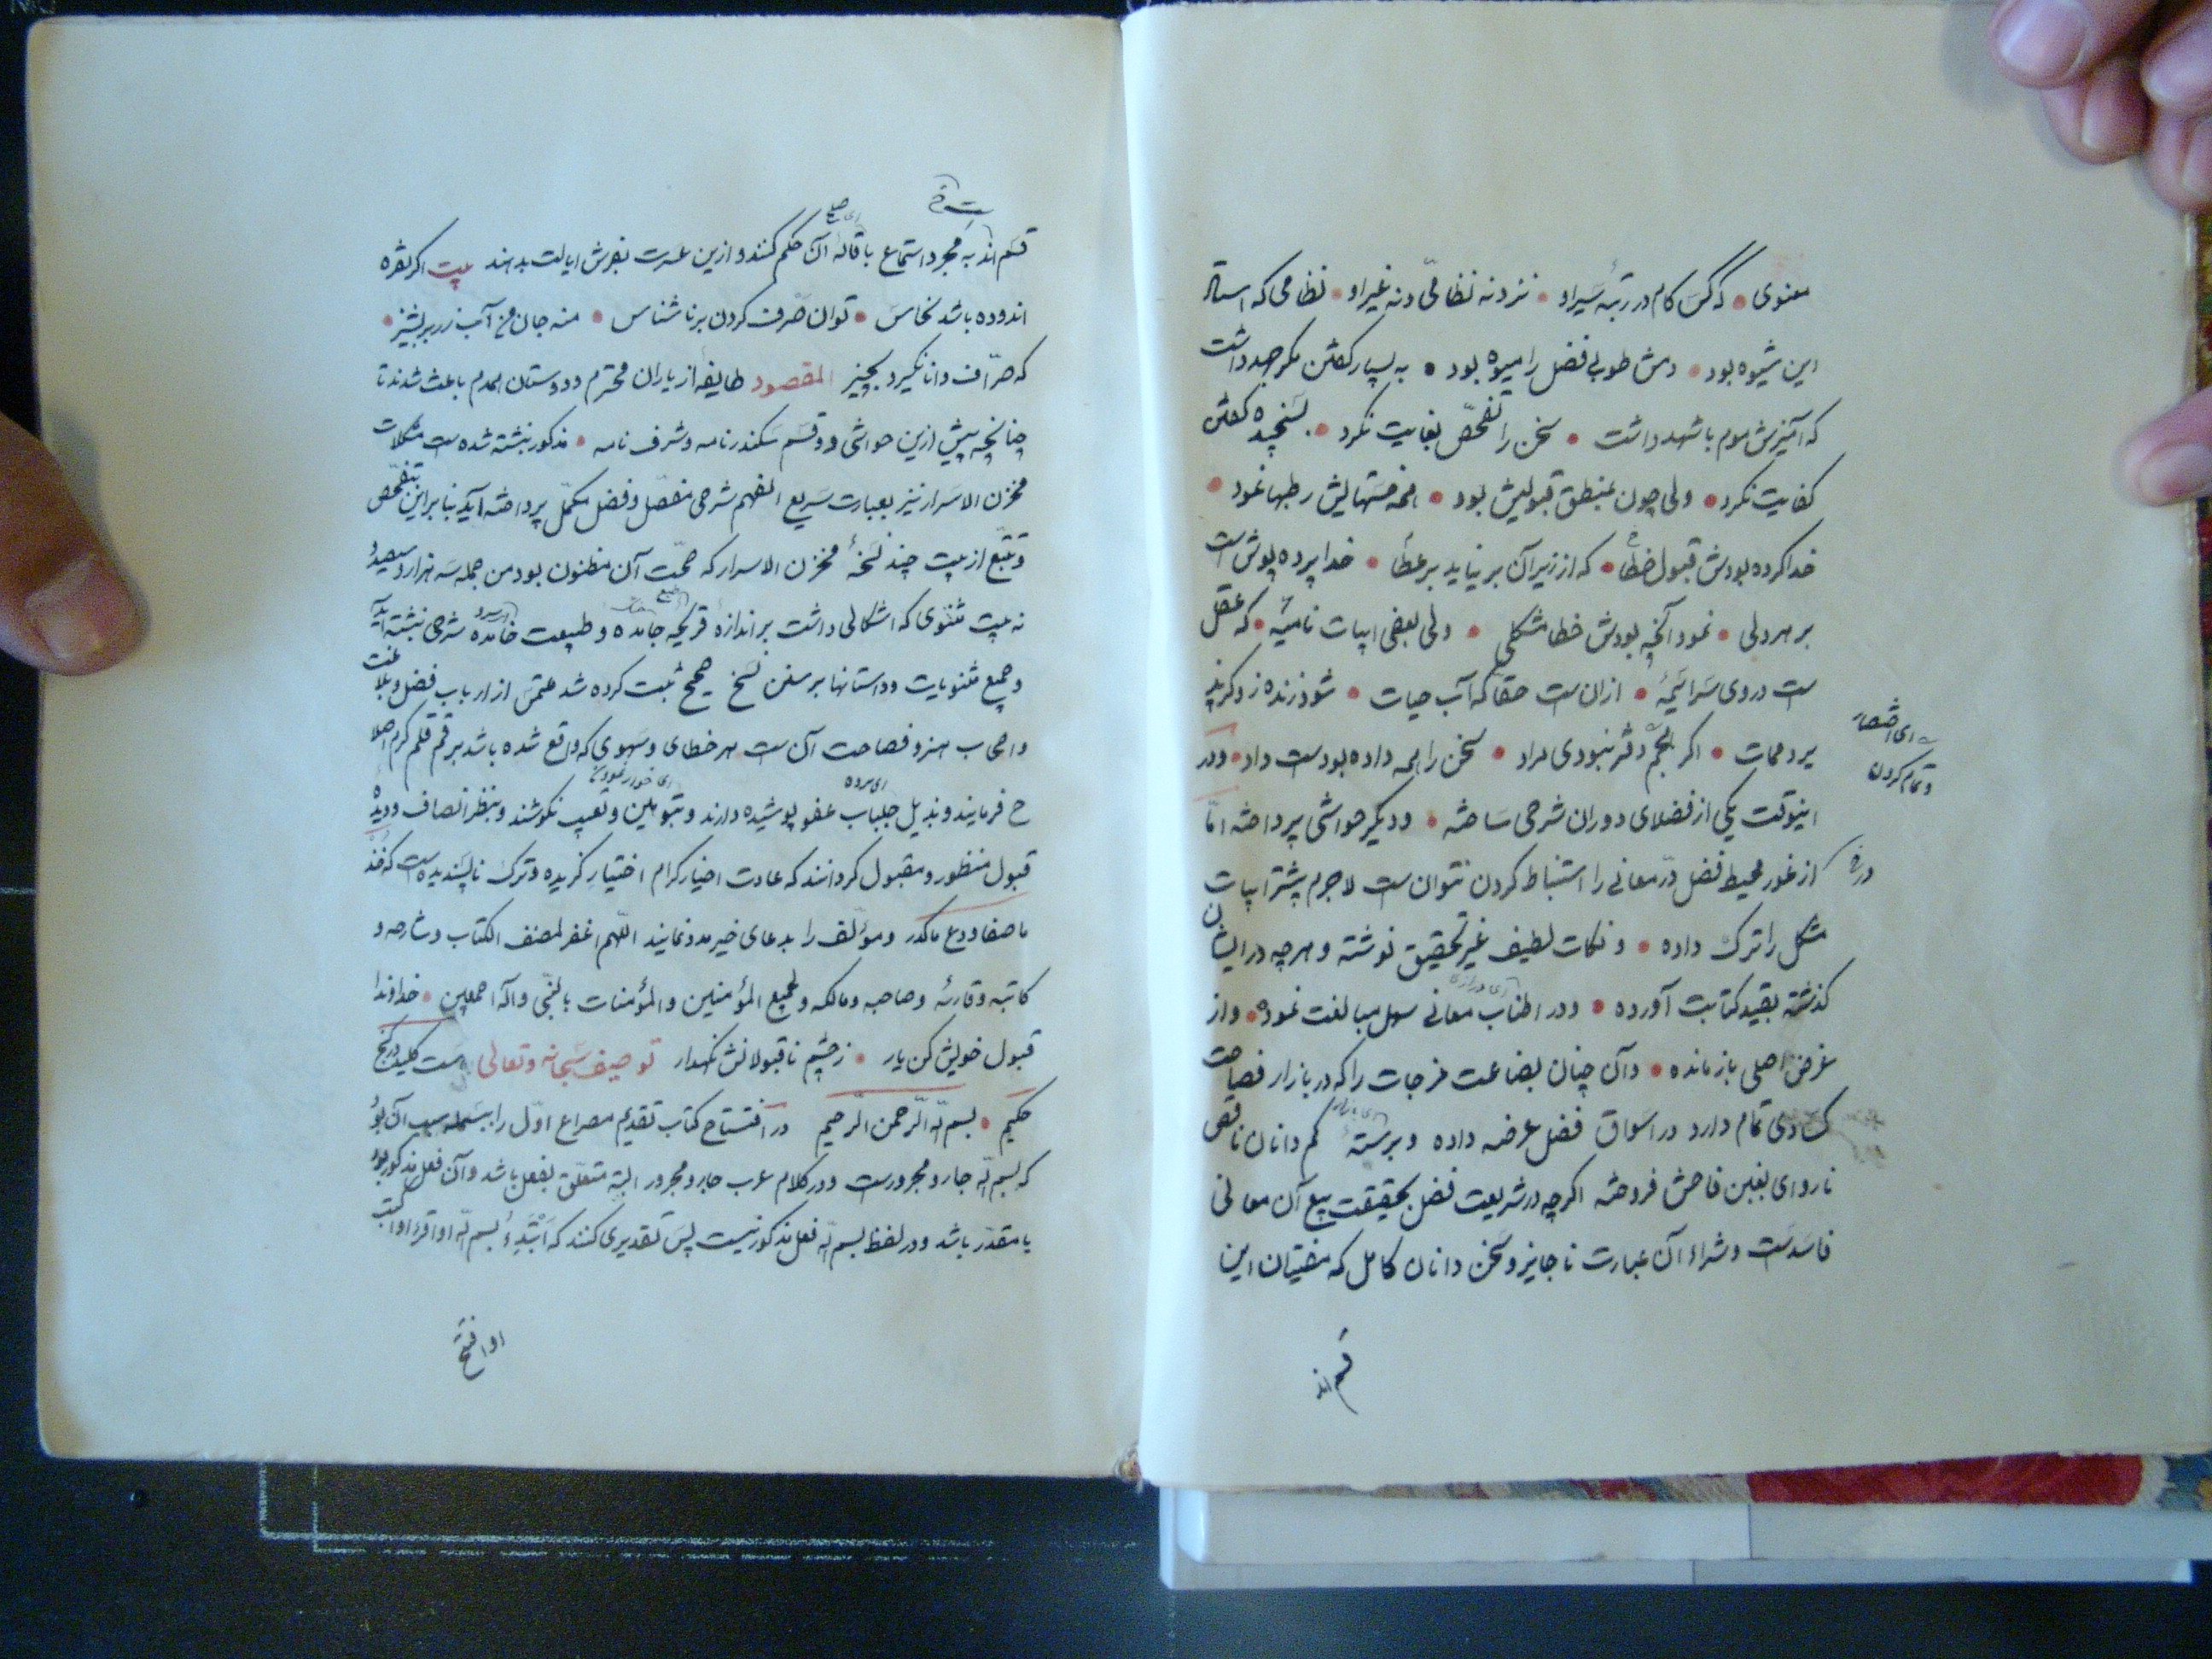 معنوی • که کس کام در رتبه سیر او • نزد نه نظامی و نه غیر او • نظامی که استاد
این شیوه بود • دمش طوبی فضل را میوه بود • به بسیار گفتن مگر جهد داشت
که آمیزش موم با شهد داشت • سخن را تفحص بغایت نکرد • بسنجیده گفتن
کفایت نکرد • ولی چون بمنطق قبولیش بود • همه خستهایش رطبها نمود •
خدا کرده بودش قبول خطا • که از زیر آن بر نیاید بر عطا • خدا پرده پوش است
بر هر ولی • نمود آنچه بودش خطا مشکلی • ولی بعضی ابیات نامیه • که عقل
ست در وی سراسیمه • ازان ست حقا که آب حیات • شود زنده زو گر پذ
یرد ممات • اگر لجم دفتر نبودی مراد • سخن را همه داده بودست داد • ودر
ای اختصار
وتمام کردن
اینوقت یکی از فضلای دوران شرحی ساخته • ودیگر حواشی پرداخته اما
از غور محیط فضل در معانی را استنباط کردن نتوان ست لاجرم بیشتر ابیات
مشکل را ترک داده • و نکات لطیف غیر تحقیق نوشته و هرچه در ایشان
گذشته بقید کتابت آورده • ودر اطناب معانی سهل مبالغت نموده • واز
غرض اصلی باز مانده • وآن چنان بضاعت مزجات را که در بازار فصاحت
کسادی تمام دارد در اسواق فضل عرضه داده و بر سته کم دانان ناقص
ناروای بغبن فاحش فروخته اگرچه در شریعت فضل بحقیقت بیع آن معانی
فاسدست وشراء آن عبارت ناجایز و سخن دانان کامل که مفتیان این
قسم اند
قسم اند به مجرد استماع باقاله آن حکم کنند و ازین عسرت بفرش ایالت بدهند بیت اگر نقره
اندوده باشد نحاس • توان صرف کردن بر ناشناس • منه جان من آب زر بر پشیز •
که صراف دانا نگیرد بچیز المقصود طایفه از یاران محترم و دوستان همدم باعث شدند تا
چنانچه پیش ازین حواشی دو قسم سکندرنامه و شرف نامه • مذکور نبشته شده ست مشکلات
مخزن الاسرار نیز بعبارت سریع الفهم شرحی مفصل وفضل مکمل پرداخته آید بنا براین بتفحص
وتتبع از بیت چند نسخه مخزن الاسرار که صحت آن مظنون بود من جمله سه هزار و سیصد و
نه بیت مثنوی که اشکالی داشت بر اندازه قریحه جامده و طبیعت خامده شرحی نبشته آید
و جمیع مثنویات و داستانها بر سنن نسخ صحیح ثبت کرده شد ملتمس از ارباب فضل و بلاغت
واصحاب هنر و فصاحت آن ست هر خطای و سهوی که واقع شده باشد برقم قلم کرم اصلا
ح فرمایند وبذیل جلباب عفو پوشیده دارند و بتوهین و تعییب نکوشند و بنظر انصاف و دیده
قبول منظور و مقبول گردانند که عادت اخیار کرام اختیار گزیده و ترک ناپسندیده ست که خذ
ما صفا ودع ما کدر ومؤلف را بدعای خیر مدد نمایند اللهم اغفر لمصنف الکتاب وشارحه و
کاتبه وقارئه وصاحبه ومالکه ولجمیع المؤمنین والمؤمنات بالنبی وآله اجمعین • خداوندا
قبول خویش کن یار • زچشم ناقبولانش نگهدار توصیف سبحانه وتعالی هست کلید در گنج
حکیم • بسم الله الرحمن الرحیم در افتتاح کتاب تقدیم مصراع اول را ببسمله سبب آن بود
که بسم الله جار ومجرورست ودر کلام عرب جار ومجرور البته متعلق بفعل باشد وآن فعل مذکور بود
یا مقدر باشد ودر لفظ بسم الله فعل مذکور نیست پس تقدیری کنند که ابتدئ بسم الله او اقرء او اکتب
او افتتح